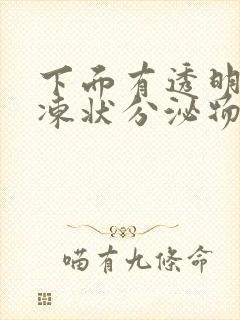 下而有透明
凍狀分泌物
喵有九條命